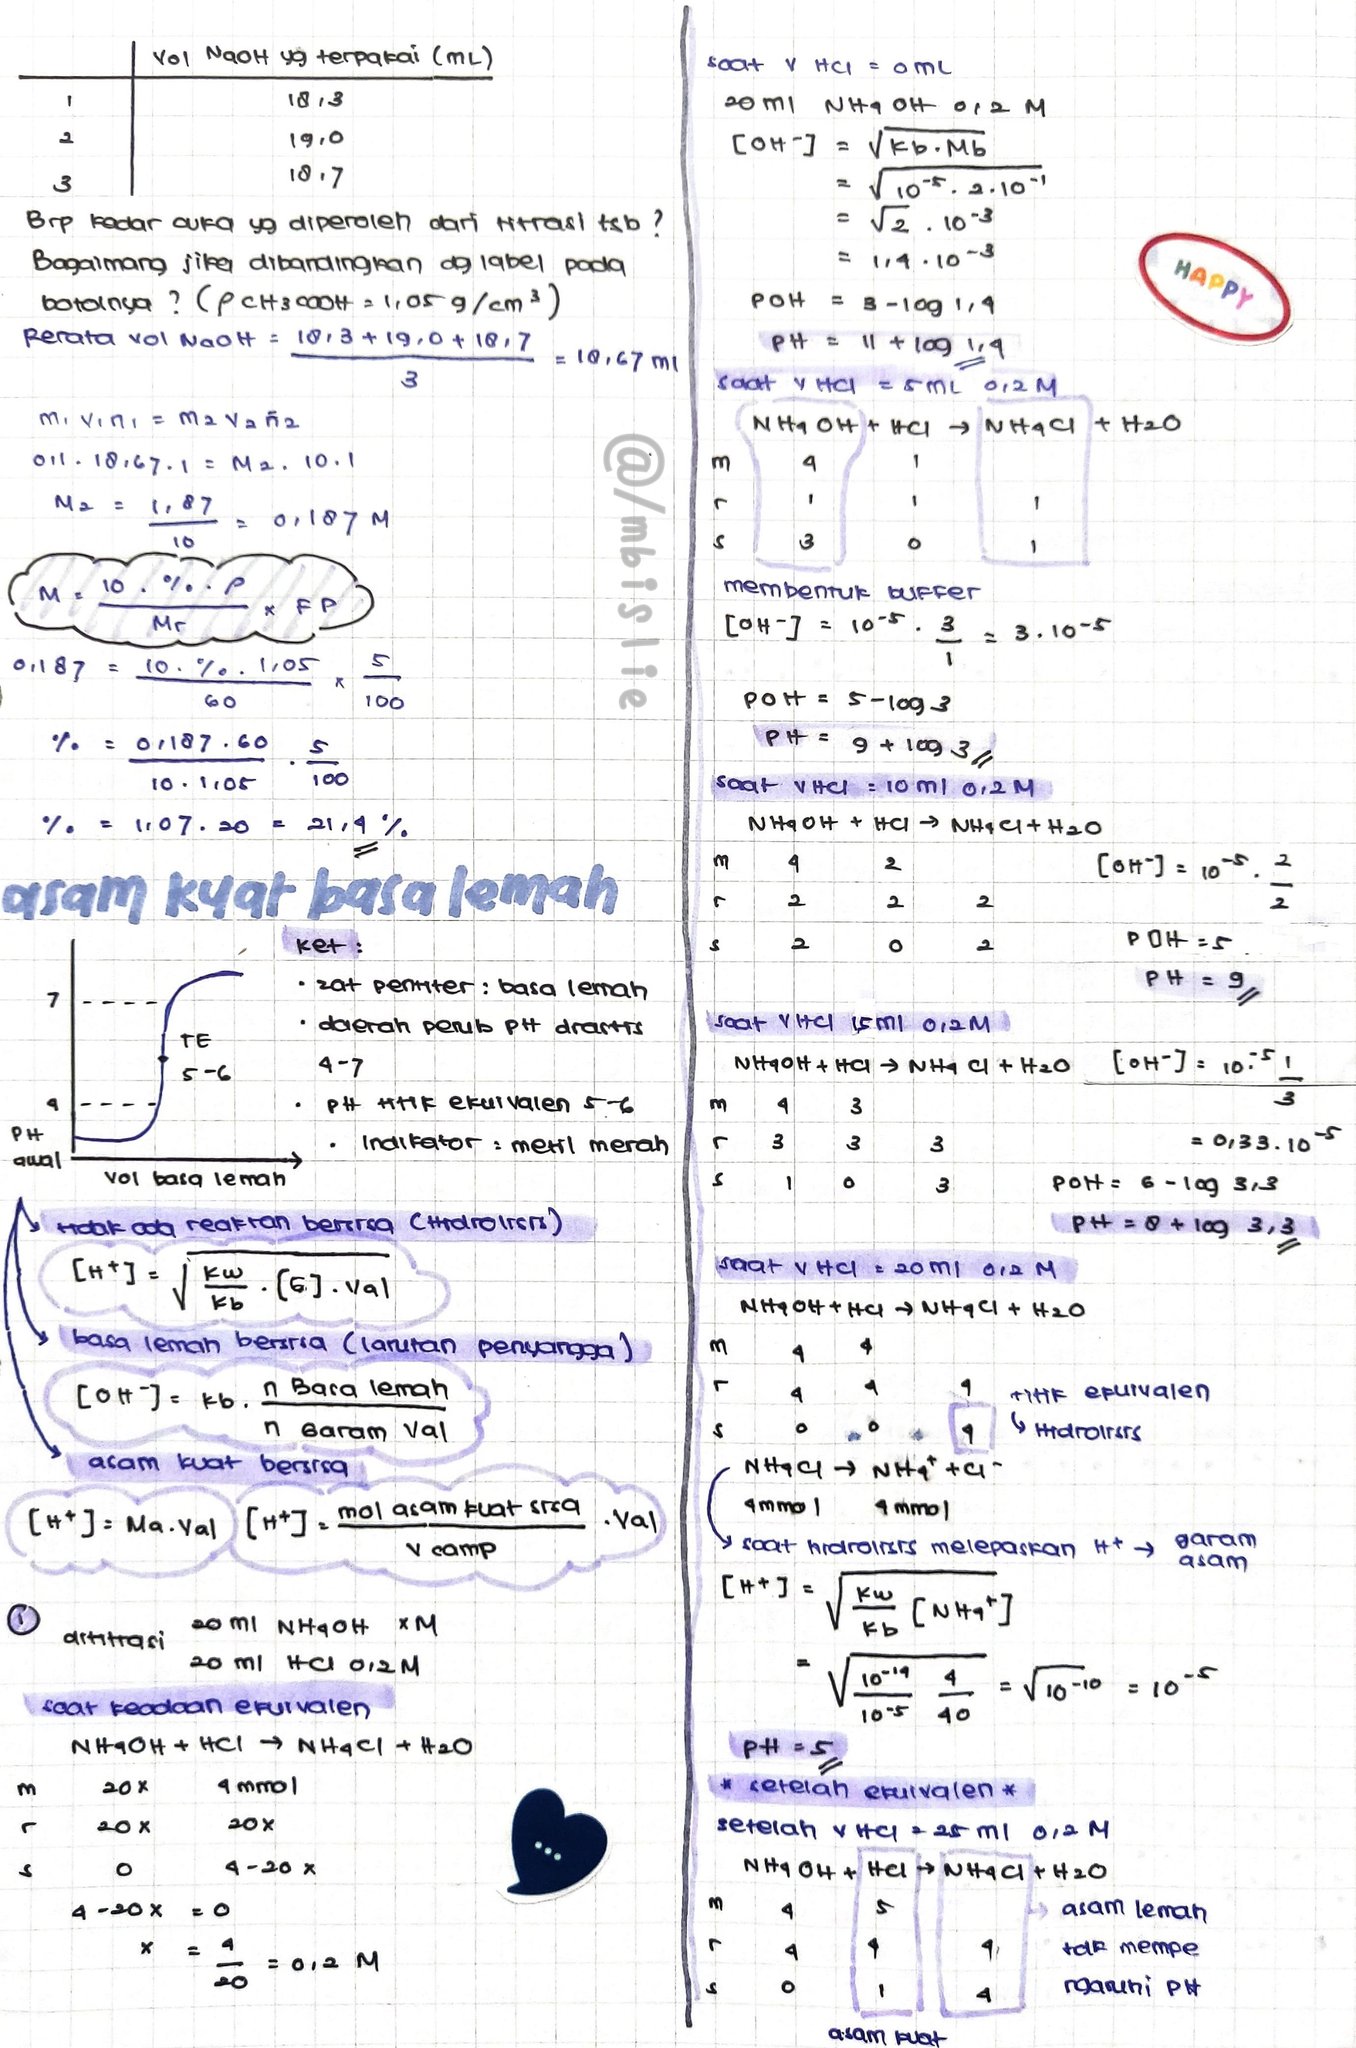 Vol NaOH yg terpakai (mL)
1 18,3
2 19,0
3 18,7
Brp kadar cuka yg diperoleh dari titrasi tsb?
Bagaimana jika dibandingkan dg label pada
botolnya? (ρ CH3COOH = 1,05 g/cm³)
Rerata vol NaOH = 18,3 + 19,0 + 18,7 / 3 = 18,67 ml
M1 V1 n1 = M2 V2 n2
0,1 . 18,67 . 1 = M2 . 10 . 1
M2 = 1,87 / 10 = 0,187 M
M = 10 . % . ρ / Mr × FP
0,187 = 10 . % . 1,05 / 60 × 5 / 100
% = 0,187 . 60 / 10 . 1,05 . 5 / 100
% = 1,07 . 20 = 21,4 %
asam kuat basa lemah
7
TE
5-6
4
PH
awal
Vol basa lemah
Ket :
• zat peniter : basa lemah
• daerah perub PH drastis
4-7
• PH titik ekuivalen 5-6
• Indikator : metil merah
tidak ada reaktan bersisa (Hidrolisis)
[H+] = √ Kw / Kb . [G] . Val
basa lemah bersisa (larutan penyangga)
[OH-] = Kb . n Basa lemah / n Garam Val
asam kuat bersisa
[H+] = Ma . Val
[H+] = mol asam kuat sisa / V camp . Val
1
dititrasi
20 ml NH4OH x M
20 ml HCl 0,2 M
saat keadaan ekuivalen
NH4OH + HCl → NH4Cl + H2O
m 20x 4 mmol
r 20x 20x
s 0 4-20x
4-20x = 0
x = 4 / 20 = 0,2 M
saat V HCl = 0 mL
20 ml NH4OH 0,2 M
[OH-] = √Kb . Mb
= √10⁻⁵ . 2 . 10⁻¹
= √2 . 10⁻³
= 1,4 . 10⁻³
POH = 3 - log 1,4
PH = 11 + log 1,4
HAPPY
saat V HCl = 5 mL 0,2 M
NH4OH + HCl → NH4Cl + H2O
m 4 1
r 1 1 1
s 3 0 1
membentuk buffer
[OH-] = 10⁻⁵ . 3 / 1 = 3 . 10⁻⁵
POH = 5 - log 3
PH = 9 + log 3
saat V HCl = 10 ml 0,2 M
NH4OH + HCl → NH4Cl + H2O
m 4 2
r 2 2 2
s 2 0 2
[OH-] = 10⁻⁵ . 2 / 2
POH = 5
PH = 9
saat V HCl 15 ml 0,2 M
NH4OH + HCl → NH4Cl + H2O
m 4 3
r 3 3 3
s 1 0 3
[OH-] = 10⁻⁵ 1 / 3
= 0,33 . 10⁻⁵
POH = 6 - log 3,3
PH = 8 + log 3,3
saat V HCl = 20 ml 0,2 M
NH4OH + HCl → NH4Cl + H2O
m 4 4
r 4 4 4
s 0 0 4
titik ekuivalen
↳ Hidrolisis
NH4Cl → NH4+ + Cl-
4 mmol 4 mmol
saat hidrolisis melepaskan H+ → garam
asam
[H+] = √ Kw / Kb [NH4+]
= √ 10⁻¹⁴ / 10⁻⁵ 4 / 40 = √10⁻¹⁰ = 10⁻⁵
PH = 5
* setelah ekuivalen *
setelah V HCl = 25 ml 0,2 M
NH4OH + HCl → NH4Cl + H2O
m 4 5
r 4 4 4
s 0 1 4
asam lemah
tdk mempe
ngaruhi PH
asam kuat
@/mbislie